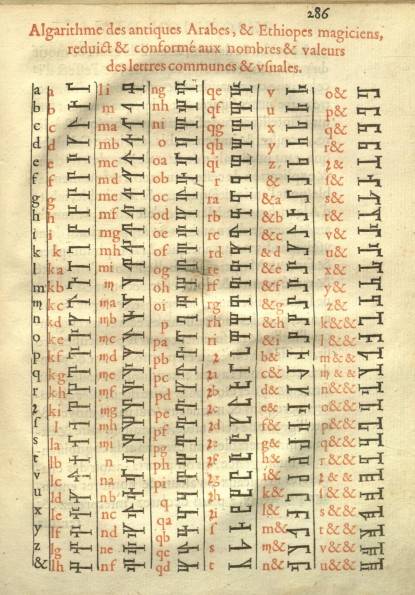 286
Algarithme des antiques Arabes, & Ethiopes magiciens,
reduict & conformé aux nombres & valeurs
des lettres communes & vsuales.
a
b
c
d
e
f
g
h
i
k
l
m
ɱ
n
o
p
q
r
ꝛ
ſ
s
t
v
u
x
y
z
&
a
b
c
d
e
f
g
h
i
k
ka
kb
kc
kd
ke
kf
kg
kh
ki
l
la
lb
lc
ld
le
lf
lg
lh
li
m
ma
mb
mc
md
me
mf
mg
mh
mi
ɱ
ɱa
ɱb
ɱc
ɱd
ɱe
ɱf
ɱg
ɱh
ɱi
n
na
nb
nc
nd
ne
nf
ng
nh
ni
o
oa
ob
oc
od
oe
of
og
oh
oi
p
pa
pb
pc
pd
pe
pf
pg
ph
pi
q
qa
qb
qc
qd
qe
qf
qg
qh
qi
r
ra
rb
rc
rd
re
rf
rg
rh
ri
ꝛ
ꝛa
ꝛb
ꝛc
ꝛd
ꝛe
ꝛf
ꝛg
ꝛh
ꝛi
ſ
s
t
v
u
x
y
z
&
&a
&b
&c
&d
&e
&f
&g
&h
&i
b&
c&
d&
e&
f&
g&
h&
i&
k&
l&
m&
ɱ&
n&
o&
p&
q&
r&
ꝛ&
s&
t&
v&
u&
x&
y&
z&
k&&
l&&
m&&
ɱ&&
n&&
o&&
p&&
q&&
r&&
ꝛ&&
s&&
t&&
v&&
u&&